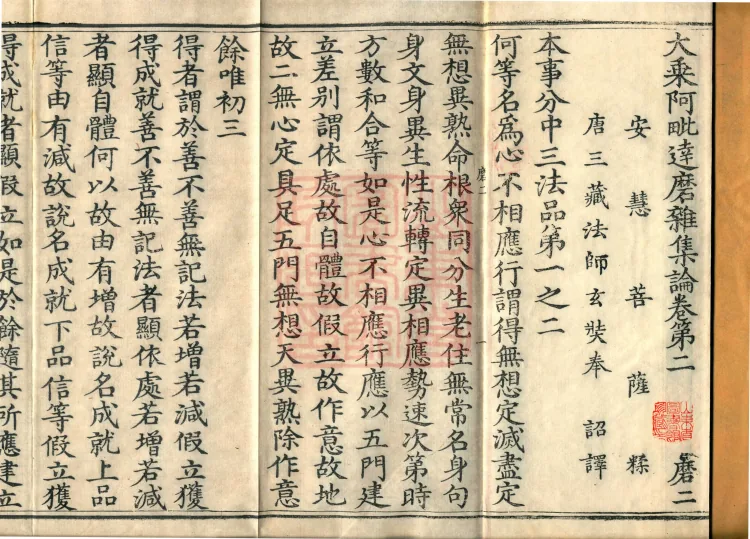 大乘阿毗達磨雜集論卷第二 磨二
安慧菩薩糅
唐三藏法師玄奘奉 詔譯
本事分中三法品第一之二
何等名爲心不相應行謂得無想定滅盡定
無想異熟命根衆同分生老住無常名身句
身文身異生性流轉定異相應勢速次第時
方數和合等如是心不相應行應以五門建
立差別謂依處故自體故假立故作意故地
故二無心定具足五門無想天異熟除作意
餘唯初三
得者謂於善不善無記法若增若減假立獲
得成就善不善無記法者顯依處若增若減
者顯自體何以故由有增故說名成就上品
信等由有減故說名成就下品信等假立獲
得成就者顯假立如是於餘隨其所應建立
磨二